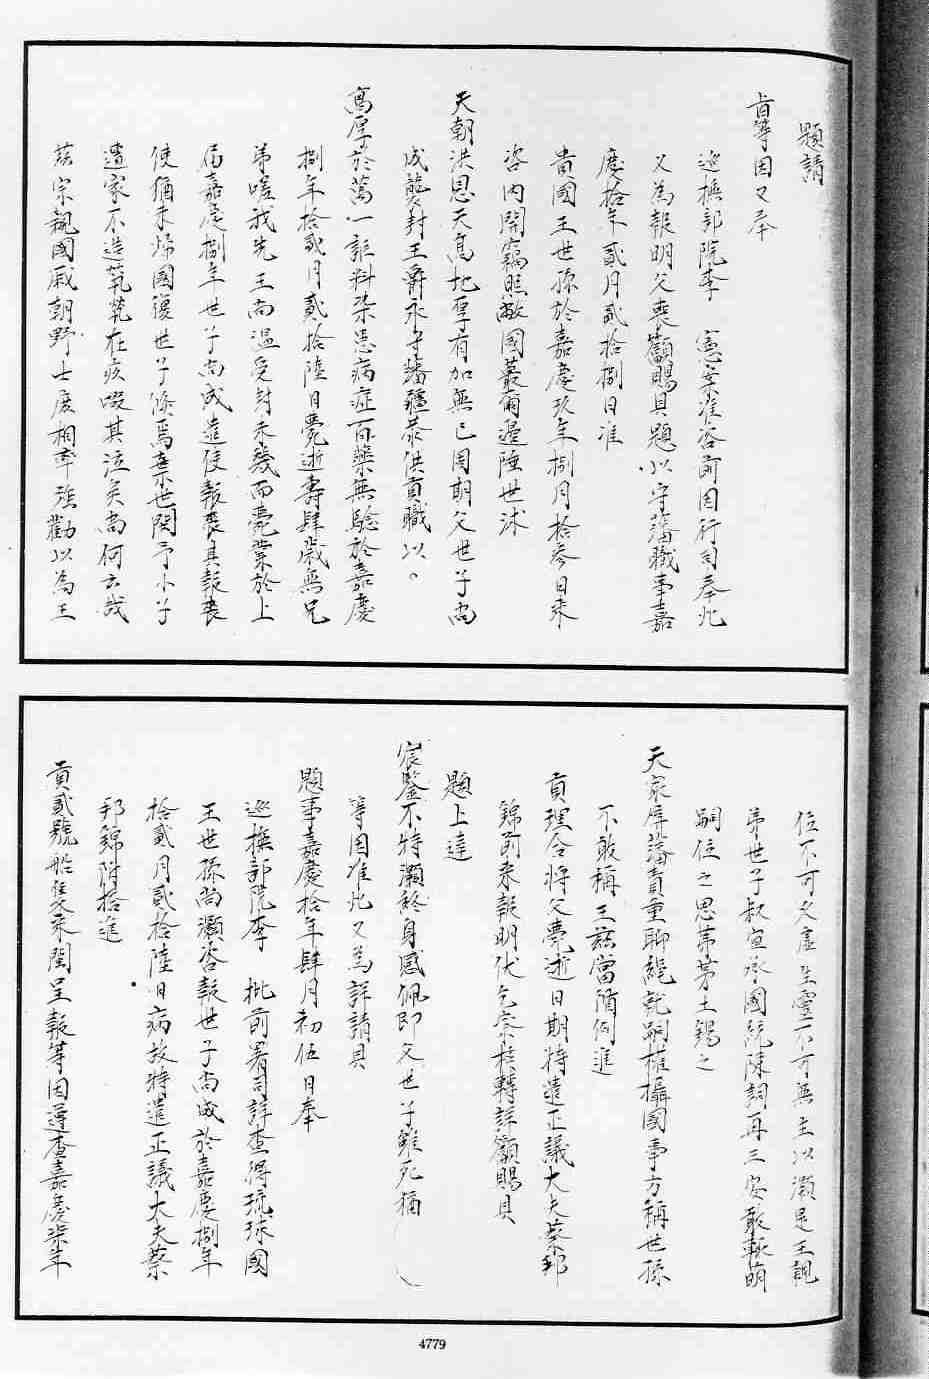 題請
旨等因又奉
巡撫部院李　憲案准咨前因行司奉此
又為報明父喪籲賜具題以守藩職事嘉
慶拾年貳月貳拾捌日准
貴國王世孫於嘉慶玖年捌月拾叁日來
咨內開竊照敝國蕞爾邊陲世沐
天朝洪恩天高地厚有加無已因期父世子尚
成襲封王爵永守藩疆恭供貢職以。
高厚於萬一詎料染患病症百藥無驗於嘉慶
捌年拾貳月貳拾陸日薨逝壽肆歲無兄
弟嗟我先王尚溫受封未幾而薨業於上
屆嘉慶捌年世子尚成遣使報喪具報喪
使猶未歸國復世子倏焉棄世閔予小子
遭家不造煢煢在疚啜其泣矣尚何云哉
茲宗親國戚朝野士庶相率強勸以為王
位不可久虛生靈不可無主以灝是王親
弟世子叔宜承國統陳詞再三安敢輒萌
嗣位之思第茅土錫之
天家屏藩責重聊繩就嗣權攝國事方稱世孫
不敢稱王茲當循例進
貢理合將父薨逝日期特遣正議大夫蔡邦
錦前來報明伏乞察核轉詳籲賜具
題上達
宸鑒不特灝終身感佩即父世子雖死猶
等因准此又為詳請具
題事嘉慶拾年肆月初伍日奉
巡撫部院李　批前署司詳查得琉球國
王世孫尚灝咨報世子尚成於嘉慶捌年
拾貳月貳拾陸日病故特遣正議大夫蔡
邦錦附搭進
貢貳號船隻來閩呈報等因遵查嘉慶柒年
4779